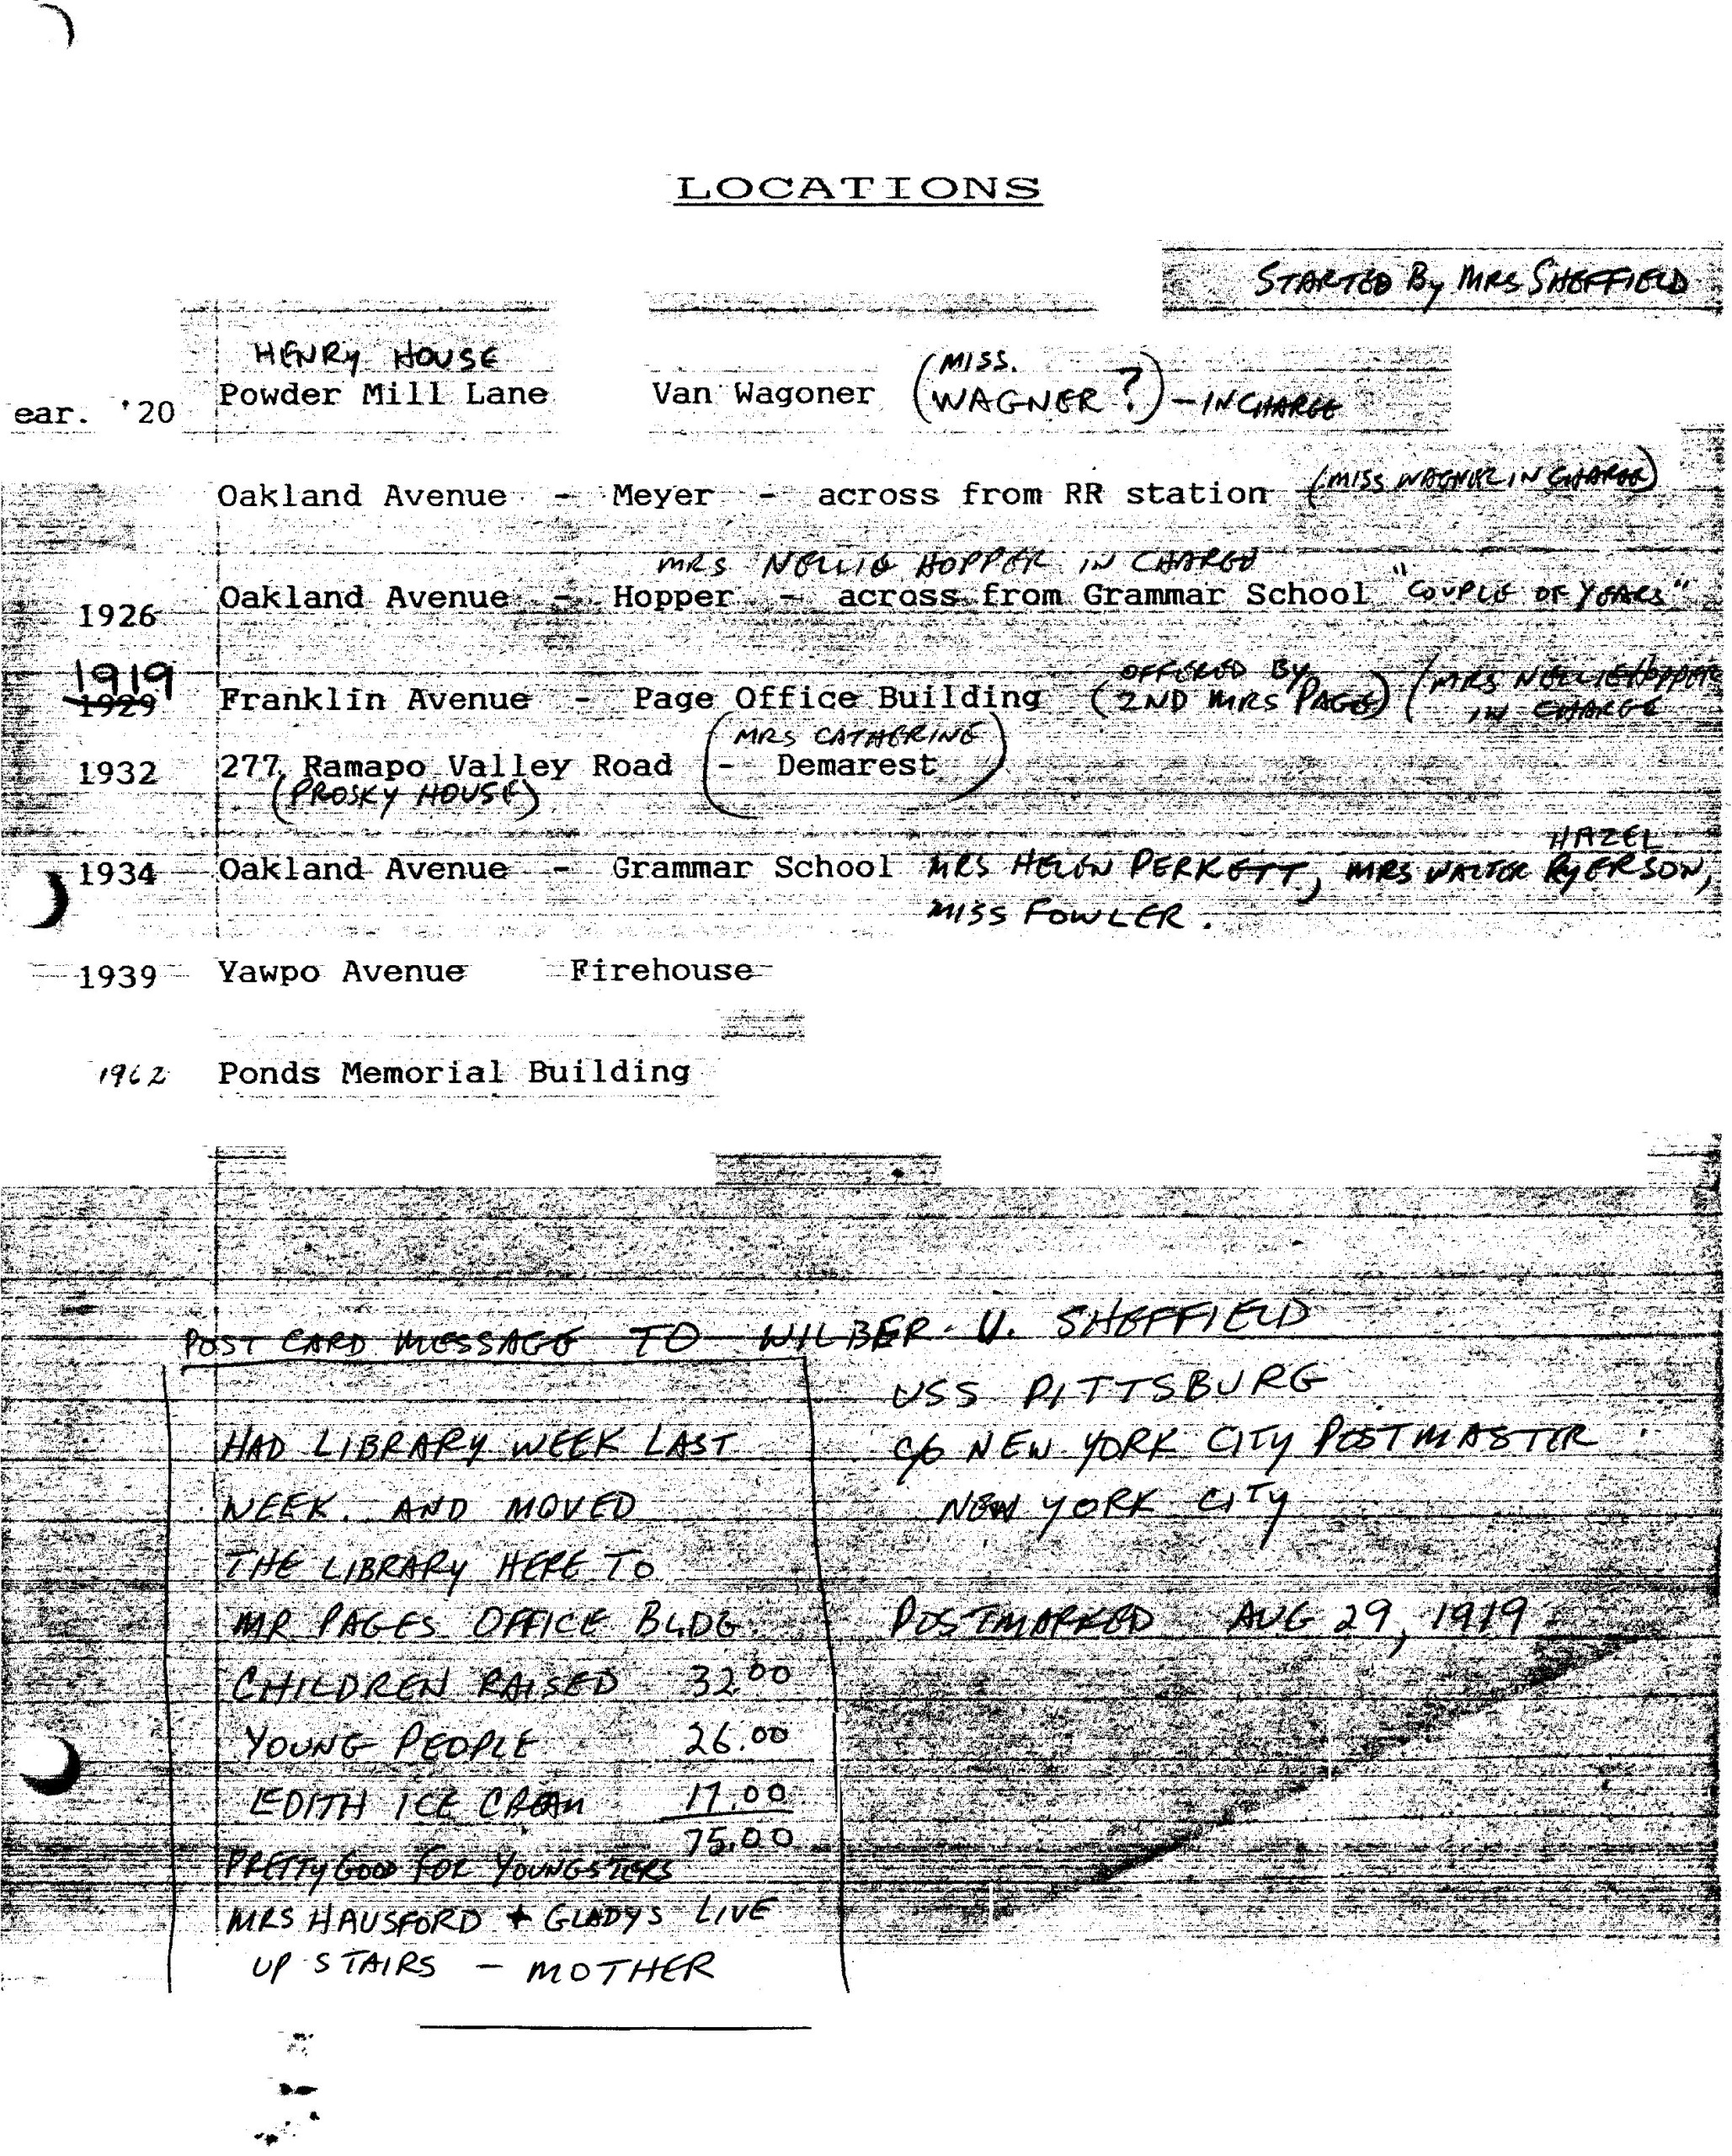 LOCATIONS
STARTED By MRS SHEFFIELD
HENRY HOUSE
ear. '20 Powder Mill Lane Van Wagoner (MISS. WAGNER?) - IN CHARGE
Oakland Avenue - Meyer - across from RR station (MISS WAGNER IN CHARGE)
MRS NELLIE HOPPER IN CHARGE
1926 Oakland Avenue - Hopper - across from Grammar School "COUPLE OF YEARS"
1919
1929 Franklin Avenue - Page Office Building (OFFERED BY 2ND MRS PAGE) (MRS NELLIE HOPPER IN CHARGE
1932 277 Ramapo Valley Road (MRS CATHERINE - Demarest)
(PROSKY HOUSE)
HAZEL
1934 Oakland Avenue - Grammar School MRS HELEN PERKETT, MRS WALTER RYERSON,
MISS FOWLER.
1939 Yawpo Avenue Firehouse
1962 Ponds Memorial Building
POST CARD MESSAGE TO WILBER U. SHEFFIELD
USS PITTSBURG
c/o NEW YORK CITY POSTMASTER
NEW YORK CITY
POSTMARKED AUG 29, 1919
HAD LIBRARY WEEK LAST
WEEK. AND MOVED
THE LIBRARY HERE TO
MR PAGES OFFICE BLDG.
CHILDREN RAISED 32.00
YOUNG PEOPLE 26.00
EDITH ICE CREAM 17.00
75.00
PRETTY GOOD FOR YOUNGSTERS
MRS HAUSFORD + GLADYS LIVE
UP STAIRS - MOTHER